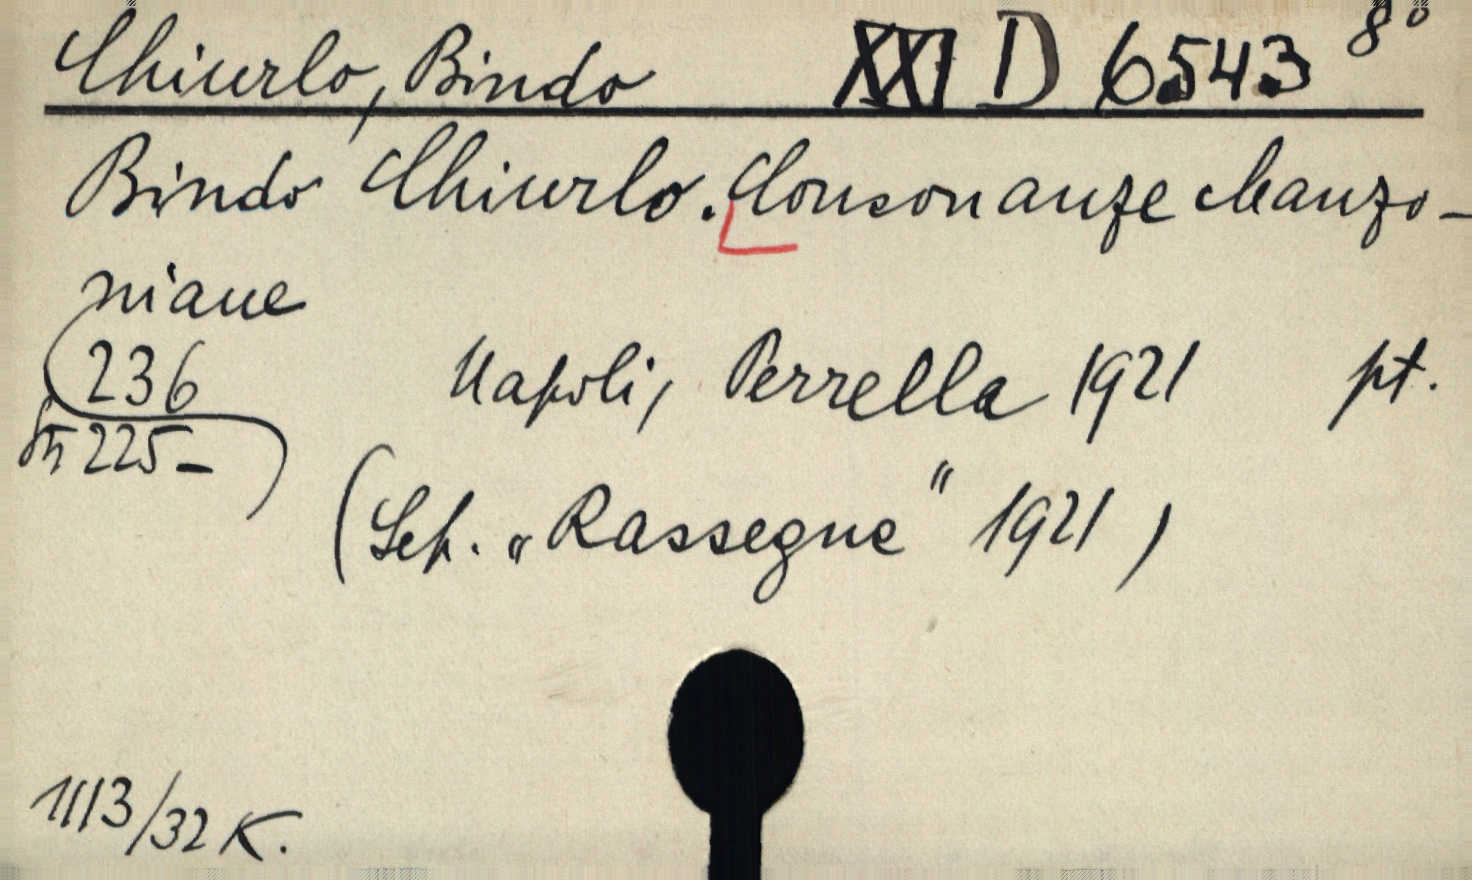 Chiurlo, Bindo XXI D 6543 8°
Bindo Chiurlo. Consonanze Manzo-
niane
236 Napoli, Perrella 1921 pt.
225-
(Sep. „Rassegne" 1921)
1113/32 K.